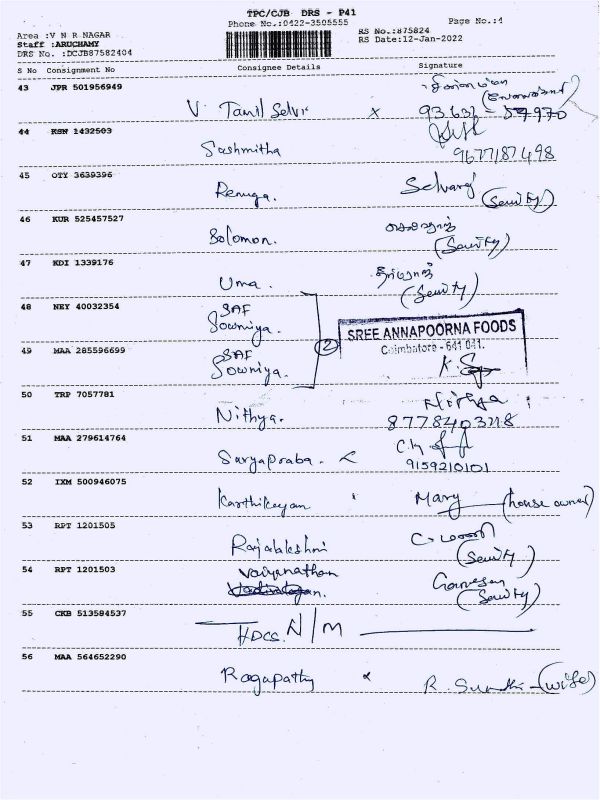 TPC/CJB DRS - P41
Phone No.:0422-3505555
Page No.:4
Area :V N R NAGAR
RS No.:875824
Staff :ARUCHAMY
RS Date:12-Jan-2022
DRS No. :DCJB87582404
S No Consignment No Consignee Details Signature
43 JPR 501956949
V. Tamil Selvi x
44 KSN 1432503
Sashmitha 9677187498
45 OTY 3639396
Renuga. Selvaraj (Seurity)
46 KUR 525457527
Solomon. (Seurity)
47 KDI 1339176
Uma. (Seurity)
48 NEY 40032354
SAF
Sowniya.
2
SREE ANNAPOORNA FOODS
Coimbatore - 641 041.
49 MAA 285596699
SAF
Sowniya.
50 TRP 7057781
Nithya. Nithya
8778403218
51 MAA 279614764
Suryapraba.
9159210101
52 IXM 500946075
Karthikeyan Mary (house owner)
53 RPT 1201505
Rajalakshmi (Seurity)
54 RPT 1201503
Vaiyanathan Ganesan
(Seurity)
55 CKB 513584537
HDCS. N/M
56 MAA 564652290
Ragapathy R. Sumathi - (wife)